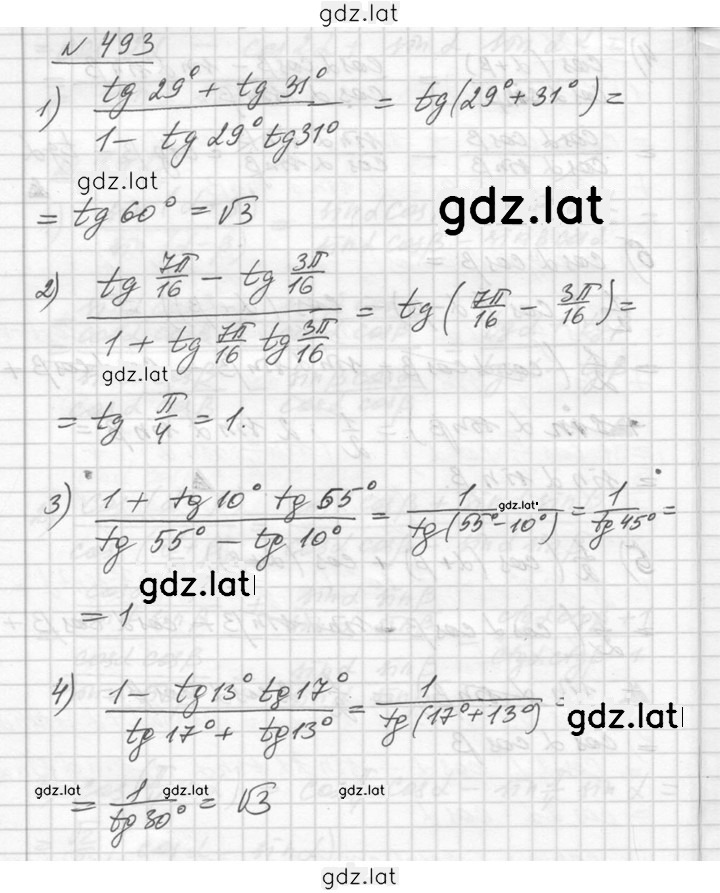 gdz.lat
№ 493
1) (tg 29° + tg 31°) / (1 - tg 29° tg 31°) = tg(29° + 31°) =
gdz.lat
= tg 60° = √3
gdz.lat
2) (tg 7π/16 - tg 3π/16) / (1 + tg 7π/16 tg 3π/16) = tg(7π/16 - 3π/16) =
gdz.lat
= tg π/4 = 1.
3) (1 + tg 10° tg 55°) / (tg 55° - tg 10°) = 1 / tg(55° - 10°) = 1 / tg 45° =
gdz.lat
gdz.lat
= 1
4) (1 - tg 13° tg 17°) / (tg 17° + tg 13°) = 1 / tg(17° + 13°) =
gdz.lat
gdz.lat gdz.lat gdz.lat
= 1 / tg 30° = √3
gdz.lat